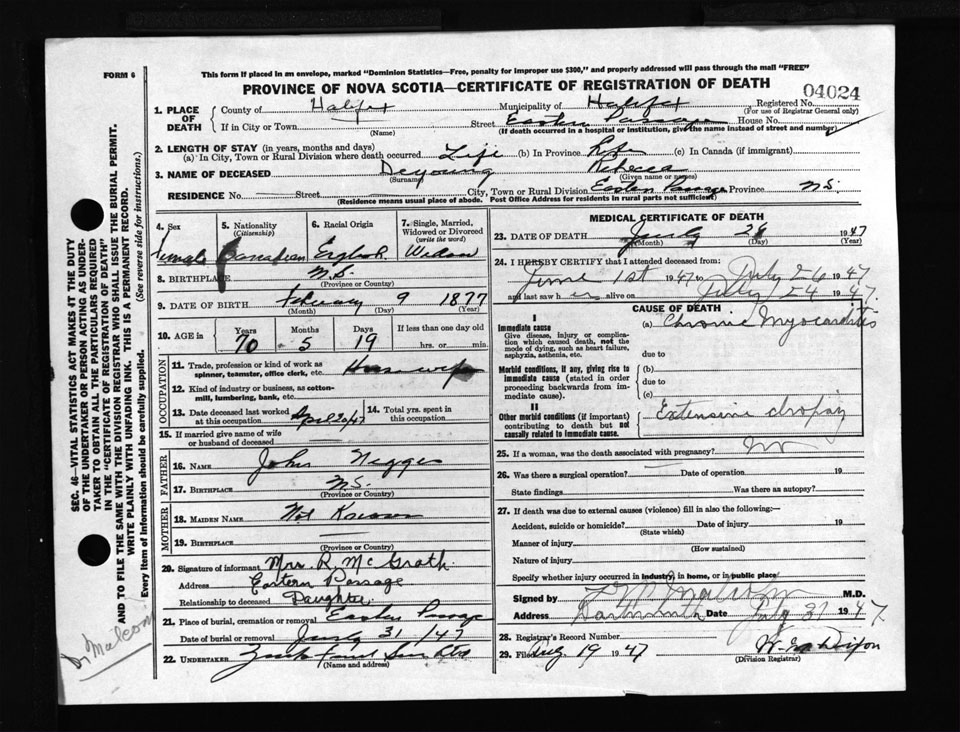 FORM 6
This form if placed in an envelope, marked "Dominion Statistics—Free, penalty for improper use $300," and properly addressed will pass through the mail "FREE"
PROVINCE OF NOVA SCOTIA—CERTIFICATE OF REGISTRATION OF DEATH
04024
1. PLACE OF DEATH
County of Halifax Municipality of Halifax Registered No.
(For use of Registrar General only)
If in City or Town Street Eastern Passage House No.
(Name) (If death occurred in a hospital or institution, give the name instead of street and number)
2. LENGTH OF STAY (in years, months and days)
(a) In City, Town or Rural Division where death occurred Life (b) In Province Life (c) In Canada (if immigrant)
3. NAME OF DECEASED Deyoung Rebecca
(Surname) (Given name or names)
RESIDENCE No. Street City, Town or Rural Division Eastern Passage Province N.S.
(Residence means usual place of abode. Post Office Address for residents in rural parts not sufficient)
4. Sex 5. Nationality (Citizenship) 6. Racial Origin 7. Single, Married, Widowed or Divorced (write the word)
Female Canadian English Widow
8. BIRTHPLACE N.S.
(Province or Country)
9. DATE OF BIRTH February 9 1877
(Month) (Day) (Year)
10. AGE in Years Months Days If less than one day old
70 5 19 hrs. or min.
OCCUPATION
11. Trade, profession or kind of work as spinner, teamster, office clerk, etc. Housewife
12. Kind of industry or business, as cotton-mill, lumbering, bank, etc.
13. Date deceased last worked at this occupation April 20/47
14. Total yrs. spent in this occupation
15. If married give name of wife or husband of deceased
FATHER
16. NAME John
17. BIRTHPLACE N.S.
(Province or Country)
MOTHER
18. MAIDEN NAME Not Known
19. BIRTHPLACE
(Province or Country)
20. Signature of informant Mrs. R. McGrath.
Address Eastern Passage
Relationship to deceased Daughter
21. Place of burial, cremation or removal Eastern Passage
Date of burial or removal July 31/47
22. UNDERTAKER
(Name and address)
MEDICAL CERTIFICATE OF DEATH
23. DATE OF DEATH July 28 1947
(Month) (Day) (Year)
24. I HEREBY CERTIFY that I attended deceased from:
June 1st 1947 to July 26 1947
and last saw her alive on July 24 1947.
CAUSE OF DEATH
I
Immediate cause
Give disease, injury or complication which caused death, not the mode of dying, such as heart failure, asphyxia, asthenia, etc.
(a) Chronic Myocarditis
due to
Morbid conditions, if any, giving rise to immediate cause (stated in order proceeding backwards from immediate cause).
(b)
due to
(c)
II
Other morbid conditions (if important) contributing to death but not causally related to immediate cause.
Extensive dropsy
25. If a woman, was the death associated with pregnancy? no
26. Was there a surgical operation? Date of operation 19
State findings Was there an autopsy?
27. If death was due to external causes (violence) fill in also the following:—
Accident, suicide or homicide? Date of injury 19
(State which)
Manner of injury
(How sustained)
Nature of injury
Specify whether injury occurred in industry, in home, or in public place
Signed by M.D.
Address Dartmouth Date July 31 1947
28. Registrar's Record Number
29. Filed Aug. 19 1947
(Division Registrar)
SEC. 46—VITAL STATISTICS ACT MAKES IT THE DUTY
OF THE UNDERTAKER OR PERSON ACTING AS UNDER-
TAKER TO OBTAIN ALL THE PARTICULARS REQUIRED
IN THE "CERTIFICATE OF REGISTRATION OF DEATH"
AND TO FILE THE SAME WITH THE DIVISION REGISTRAR WHO SHALL ISSUE THE BURIAL PERMIT.
WRITE PLAINLY WITH UNFADING INK. THIS IS A PERMANENT RECORD.
Every item of Information should be carefully supplied. (See reverse side for instructions.)
Dr Malcom